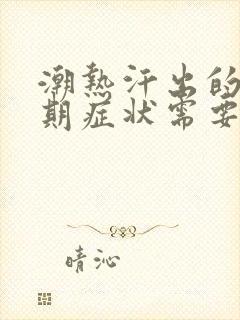 潮热汗出的
期症状需要
晴沁